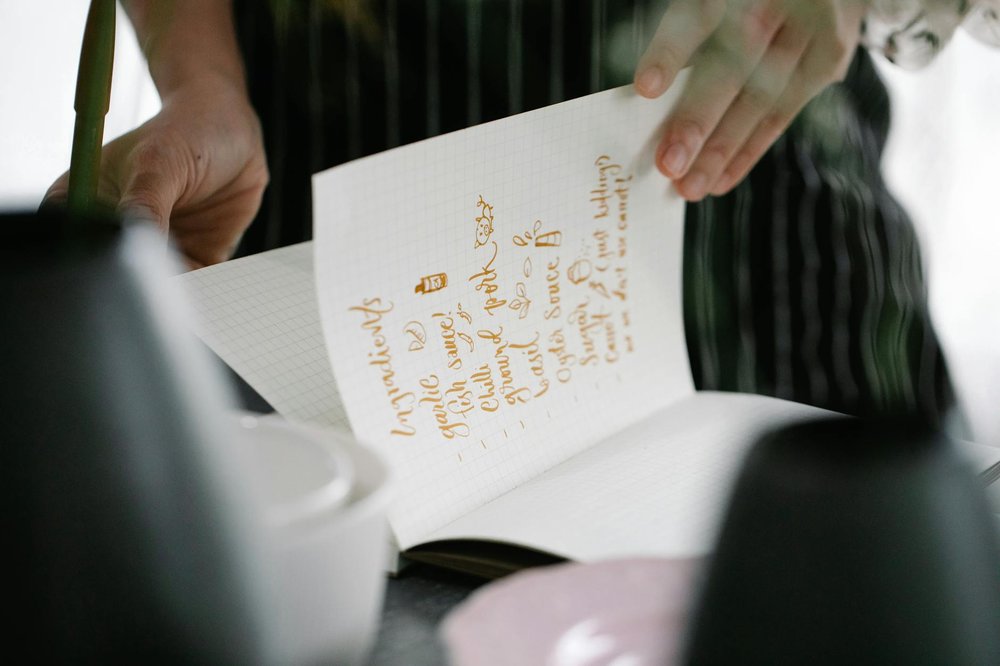 Ingradients
- garlic
- fish sauce!
- chilli
- ground pork
- basil
- Oyster Souce
- Sugar
- Carrot & (just kidding,
we don't use carrot!)